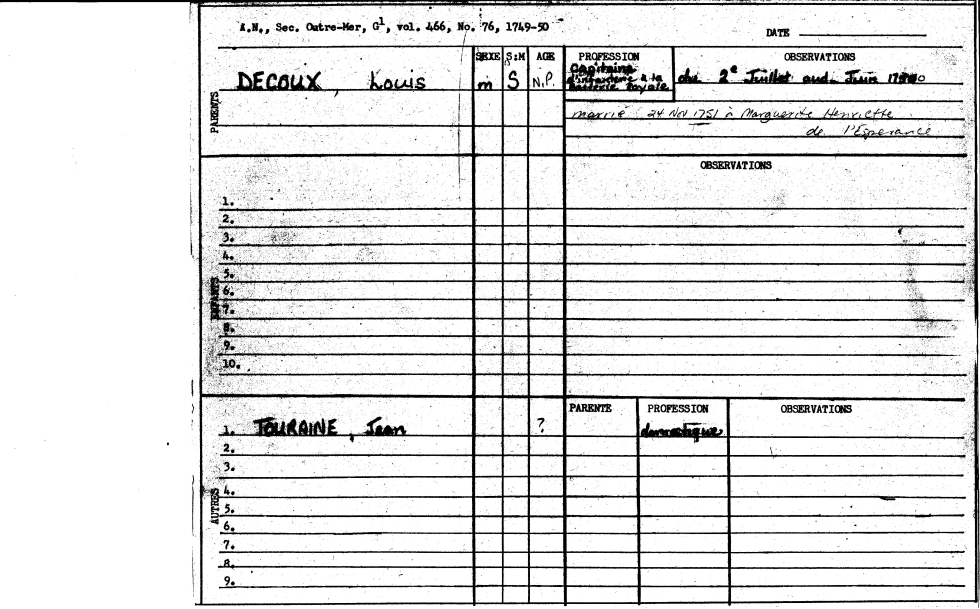 A.N., Sec. Outre-Mer, G1, vol. 466, No. 76, 1749-50
DATE
SEXE S:M AGE PROFESSION OBSERVATIONS
DECOUX, Louis m S N.P. Capitaine d'infanterie à la royale du 2e Juillet and Juin
PARENTS
marrié 24 Nov 1751 à Marguerite Henriette
de l'Esperance
OBSERVATIONS
ENFANTS
1.
2.
3.
4.
5.
6.
7.
8.
9.
10.
PARENTE PROFESSION OBSERVATIONS
AUTRES
1. TOURAINE, Jean ? domestique
2.
3.
4.
5.
6.
7.
8.
9.